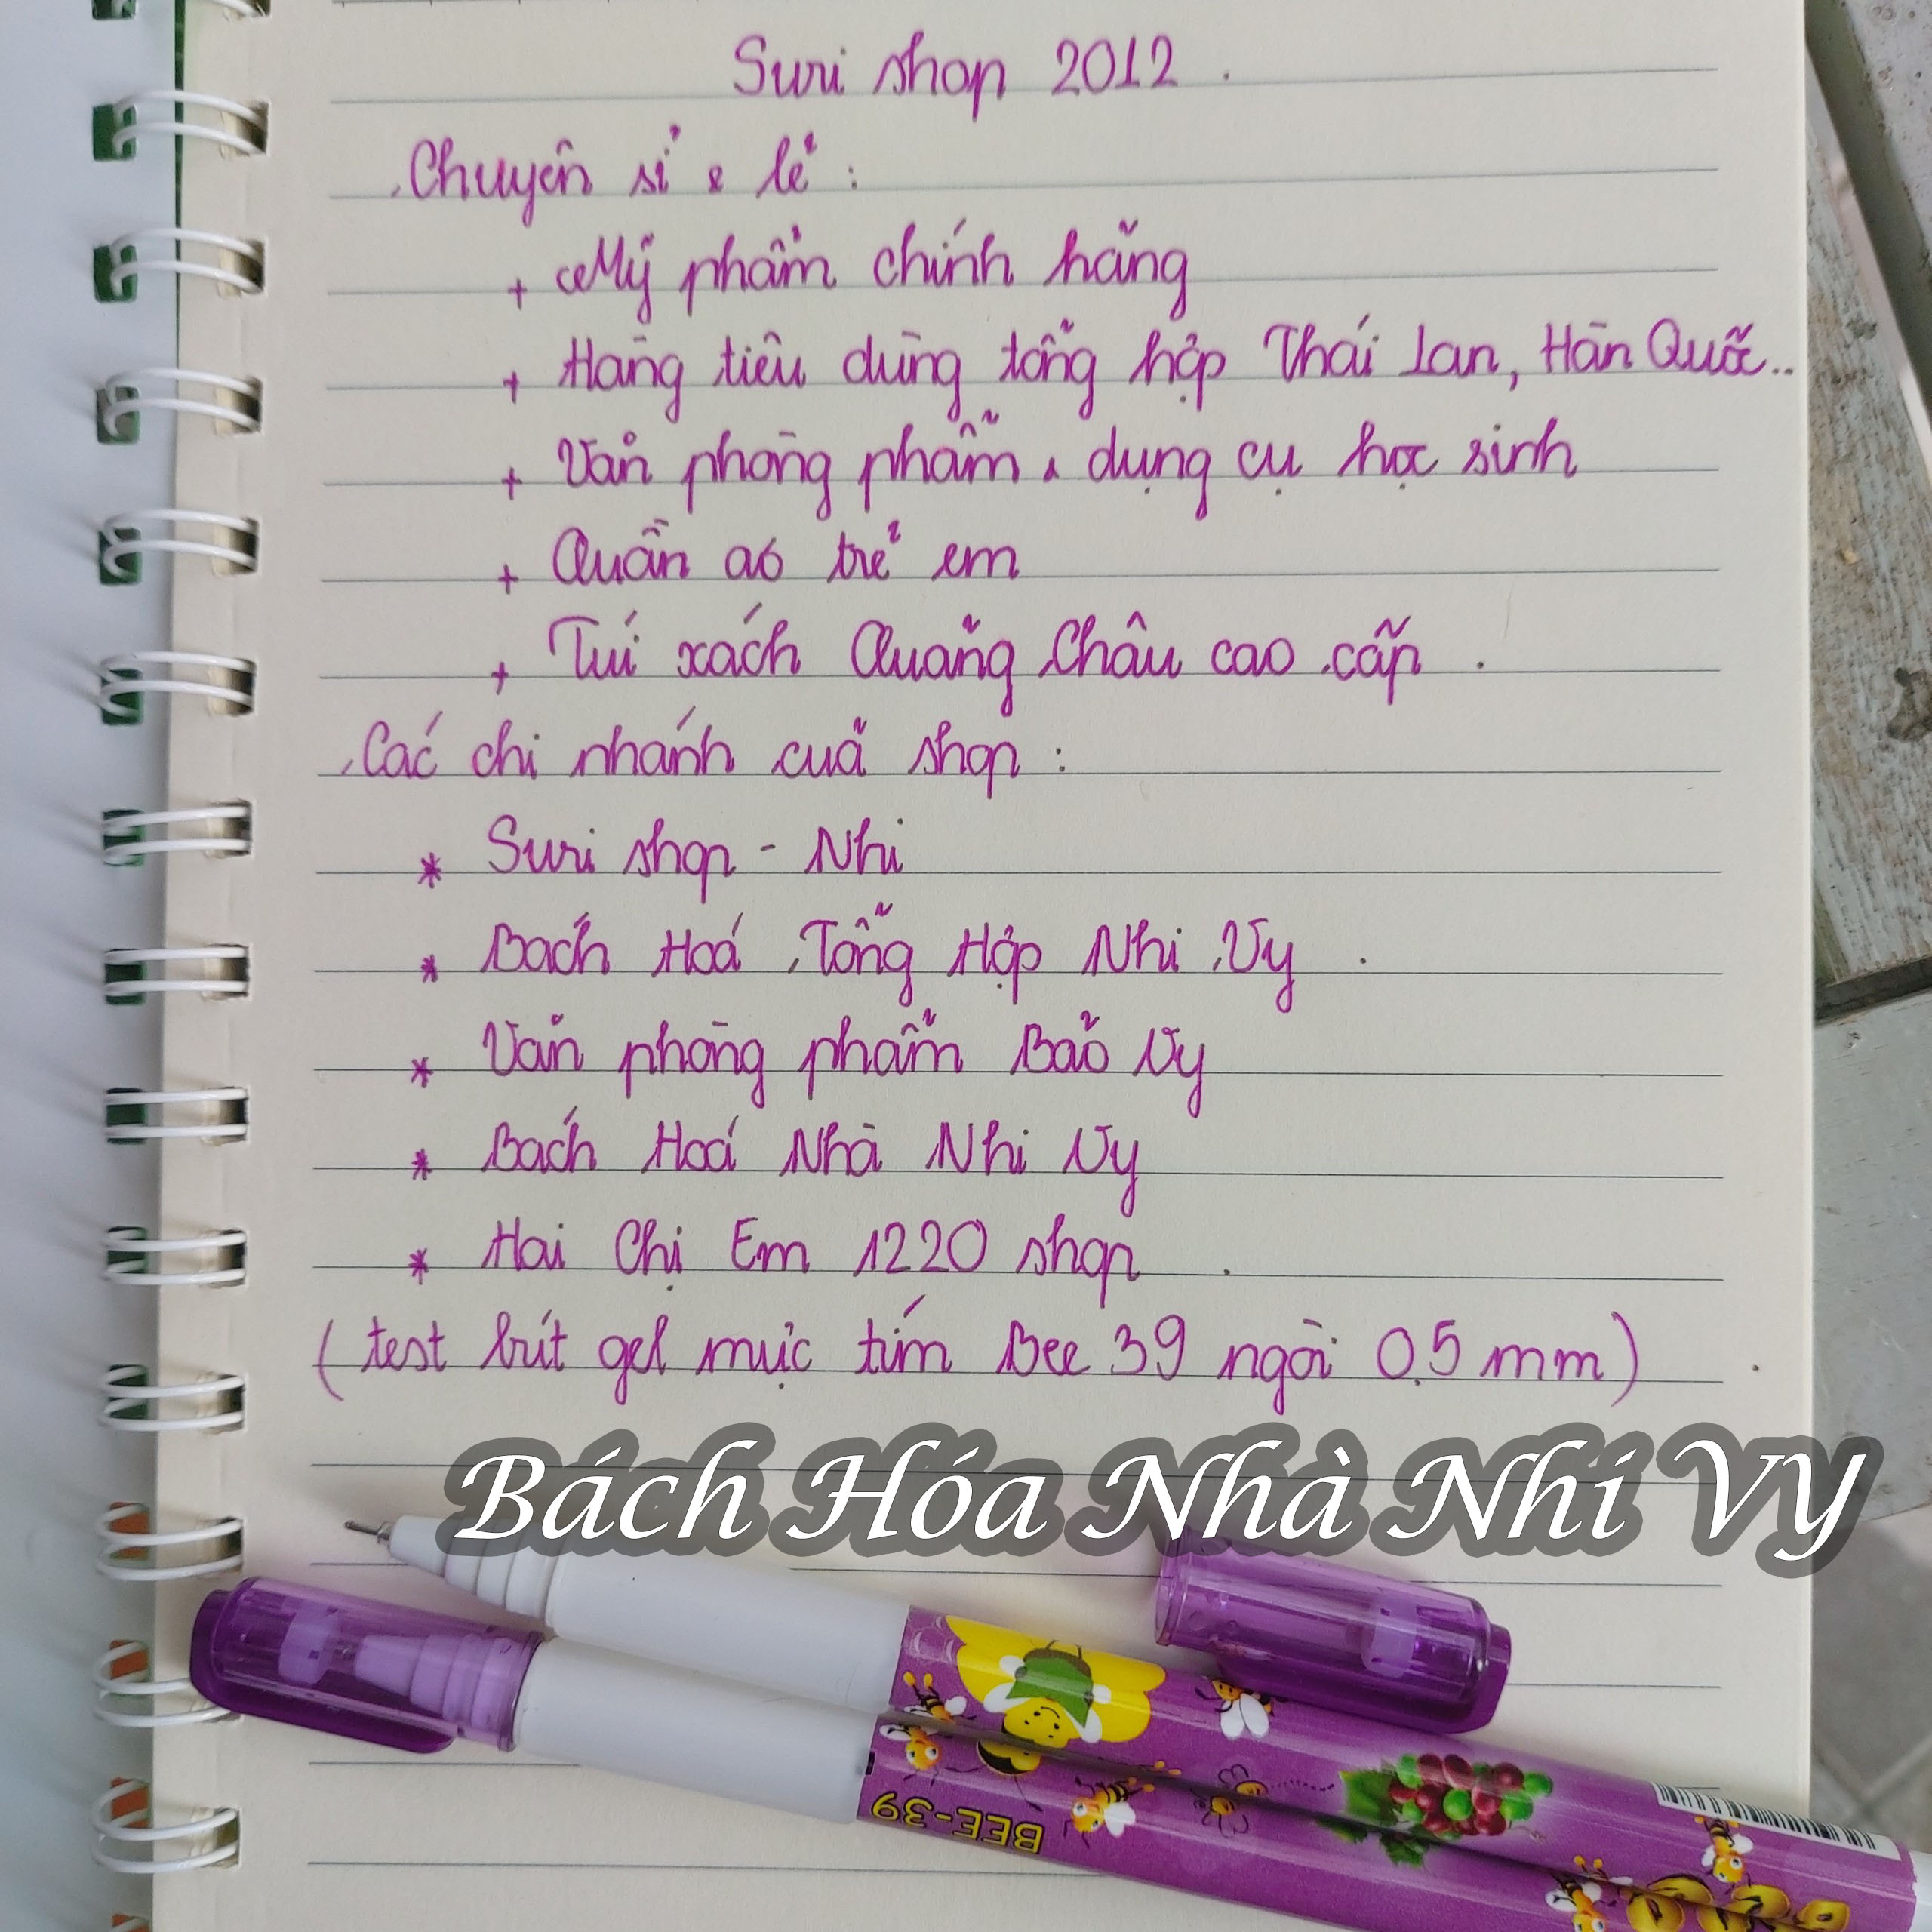 Suri shop 2012.
Chuyên sỉ & lẻ:
+ Mỹ phẩm chính hãng
+ Hàng tiêu dùng tổng hợp Thái Lan, Hàn Quốc..
+ Văn phòng phẩm & dụng cụ học sinh
+ Quần áo trẻ em
+ Túi xách Quảng Châu cao cấp.
Các chi nhánh của shop:
* Suri shop - Nhi
* Bách Hoá Tổng Hợp Nhi Vy.
* Văn phòng phẩm Bảo Vy
* Bách Hoá Nhà Nhi Vy
* Hai Chị Em 1220 shop.
(test bút gel mực tím Bee 39 ngòi 0.5 mm).
Bách Hóa Nhà Nhi Vy
BEE-39